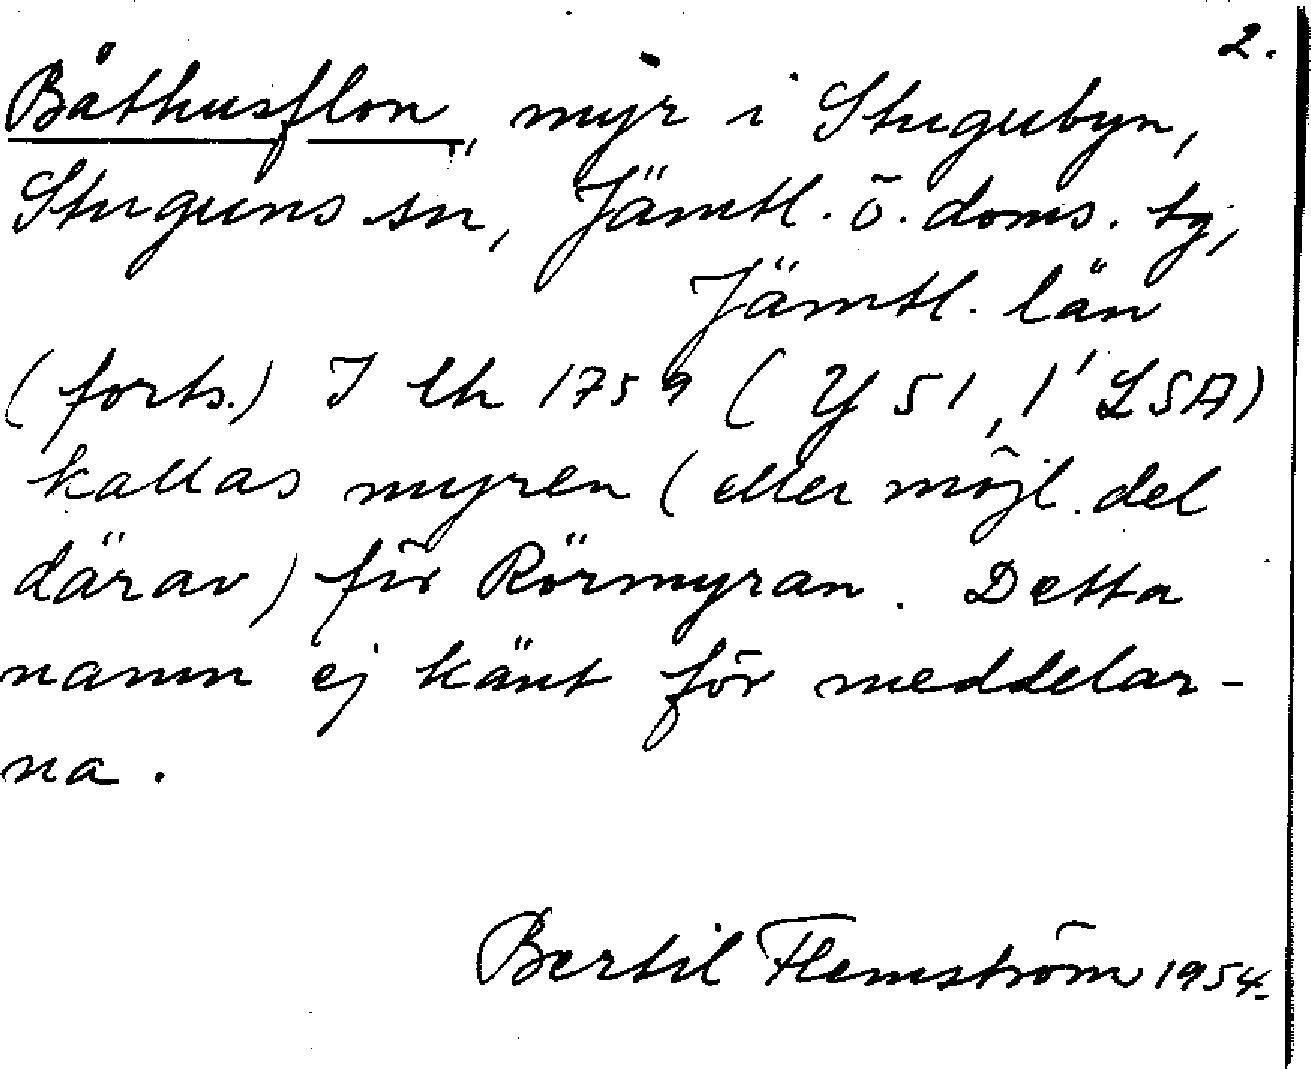 2.
Båthusflon, myr i Stugubyn,
Stuguns sn, Jämtl. ö. doms. tg,
Jämtl. län
(forts.) I lh 1759 (Y 51, 1' LSA)
kallas myren (eller möjl. del
därav) för Rörmyran. Detta
namn ej känt för meddelar-
na.
Bertil Flemström 1954.